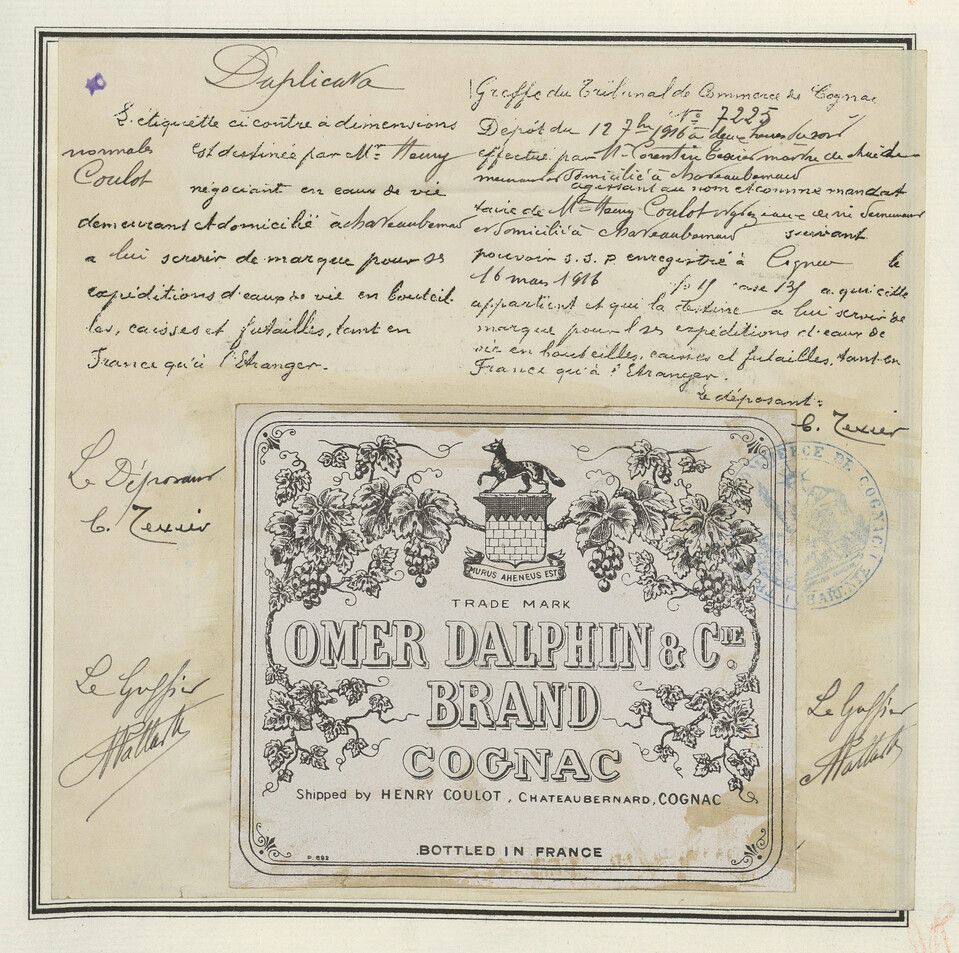 Duplicata
L'étiquette ci contre à dimensions
normales est destinée par Mr Henry
Coulot
négociant en eaux de vie
demeurant et domicilié à chateaubernard
a lui servir de marque pour ses
expéditions d'eaux de vie en bouteil
les, caisses et futailles, tant en
France qu'à l'Etranger.
Le Déposant
C. Texier
Le Greffier
Greffe du Tribunal de Commerce de Cognac
No 7225
Dépôt du 12 7bre 1916 à deux heures du soir
effectué par Mr Corentin Texier maître de chai de
meurant et domicilié à chateaubernard
agissant au nom et comme mandat
taire de Mr Henry Coulot négt eaux de vie demeurant
et domicilié à chateaubernard suivant
pouvoir s.s.p enregistré à Cognac le
16 mai 1916 fo 19 case 131 a qui elle
appartient et qui la destine a lui servir de
marque pour ses expéditions d'eaux de
vie en bouteilles, caisses et futailles, tant en
France qu'à l'Etranger.
Le déposant:
C. Texier
COMMERCE DE COGNAC
CHARENTE
Le Greffier
MURUS AHENEUS EST
TRADE MARK
OMER DALPHIN & CIE
BRAND
COGNAC
Shipped by HENRY COULOT, CHATEAUBERNARD, COGNAC
BOTTLED IN FRANCE